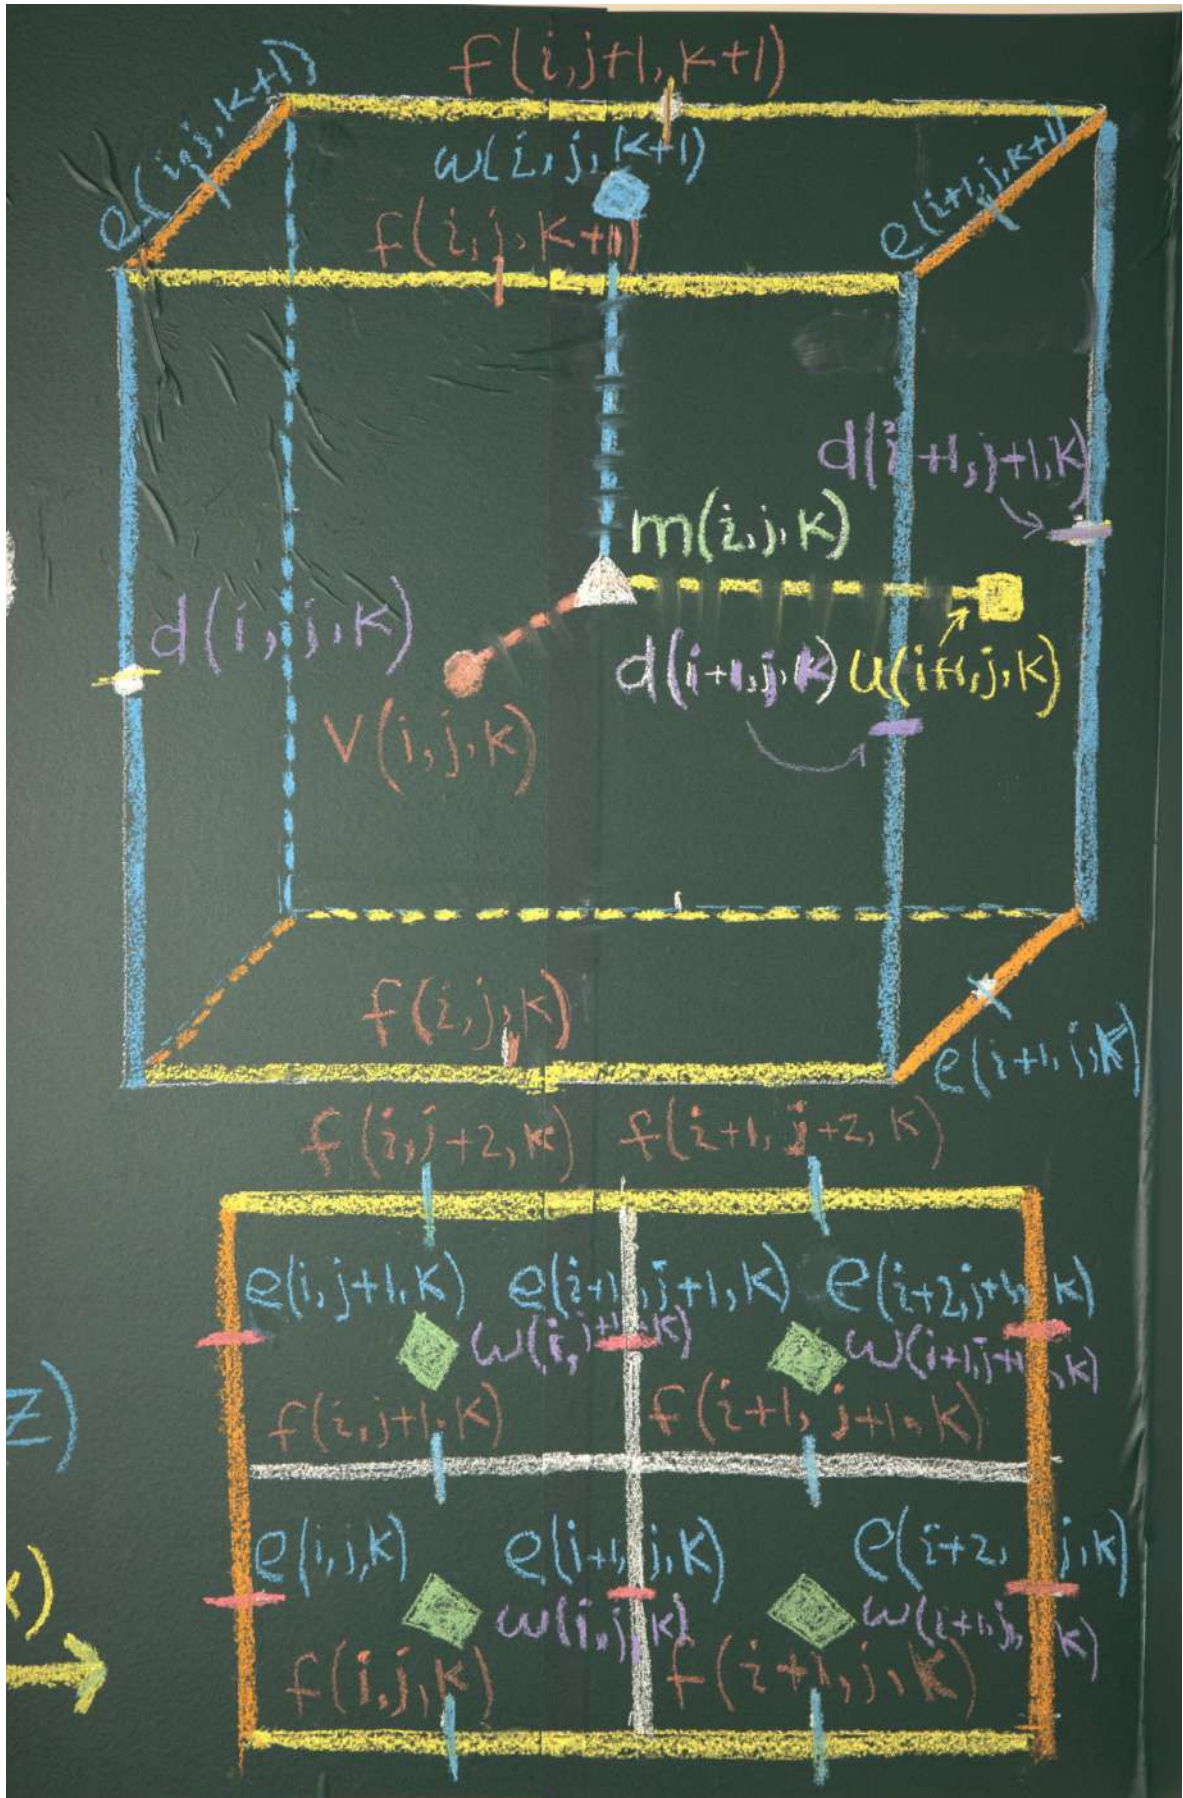 f(i,j+1,k+1)
e(i,j,k+1)
w(i,j,k+1)
e(i+1,j,k+1)
f(i,j,k+1)
d(i+1,j+1,k)
m(i,j,k)
d(i,j,k)
d(i+1,j,k) u(i+1,j,k)
v(i,j,k)
f(i,j,k)
e(i+1,j,k)
f(i,j+2,k) f(i+1,j+2,k)
e(i,j+1,k) e(i+1,j+1,k) e(i+2,j+1,k)
w(i,j+1,k) w(i+1,j+1,k)
f(i,j+1,k) f(i+1,j+1,k)
z)
e(i,j,k) e(i+1,j,k) e(i+2,j,k)
w(i,j,k) w(i+1,j,k)
)
f(i,j,k) f(i+1,j,k)